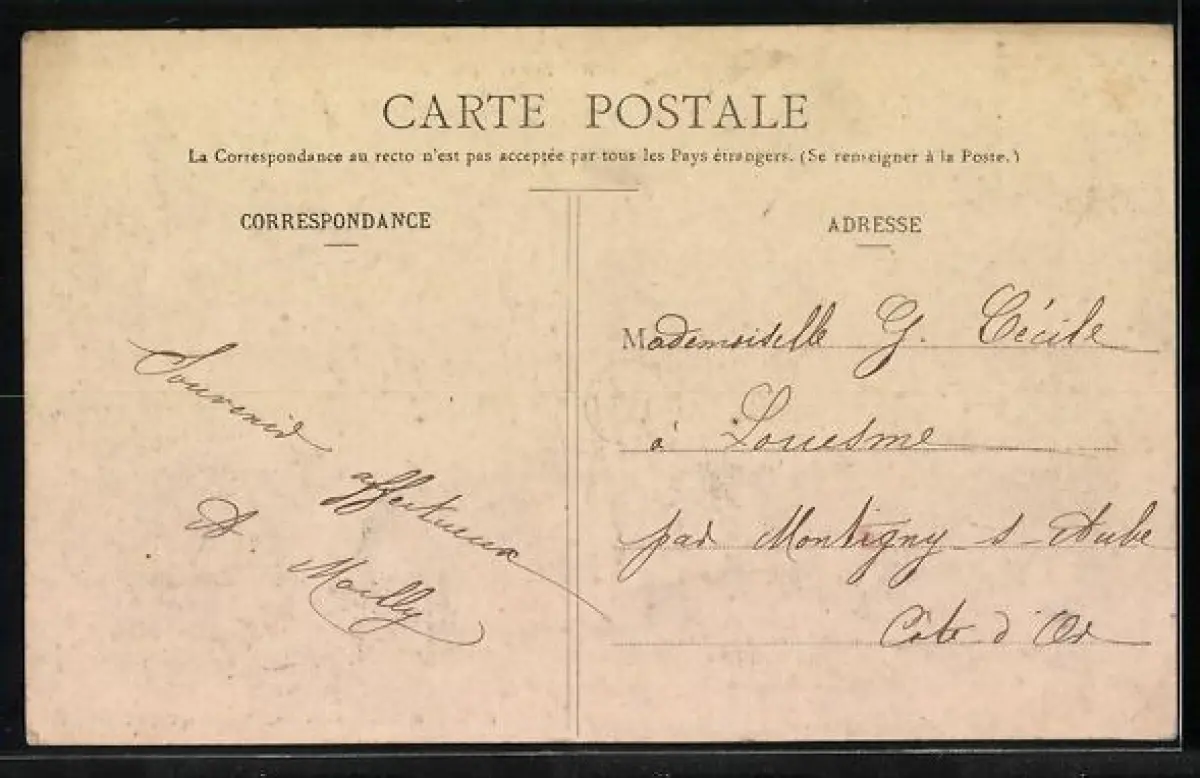 CARTE POSTALE
La Correspondance au recto n'est pas acceptée par tous les Pays étrangers. (Se renseigner à la Poste.)
CORRESPONDANCE
Souvenir
affectueux
A. Mailly
ADRESSE
Mademoiselle G. Cécile
à Louesme
par Montigny s-Aube
Côte d'Or